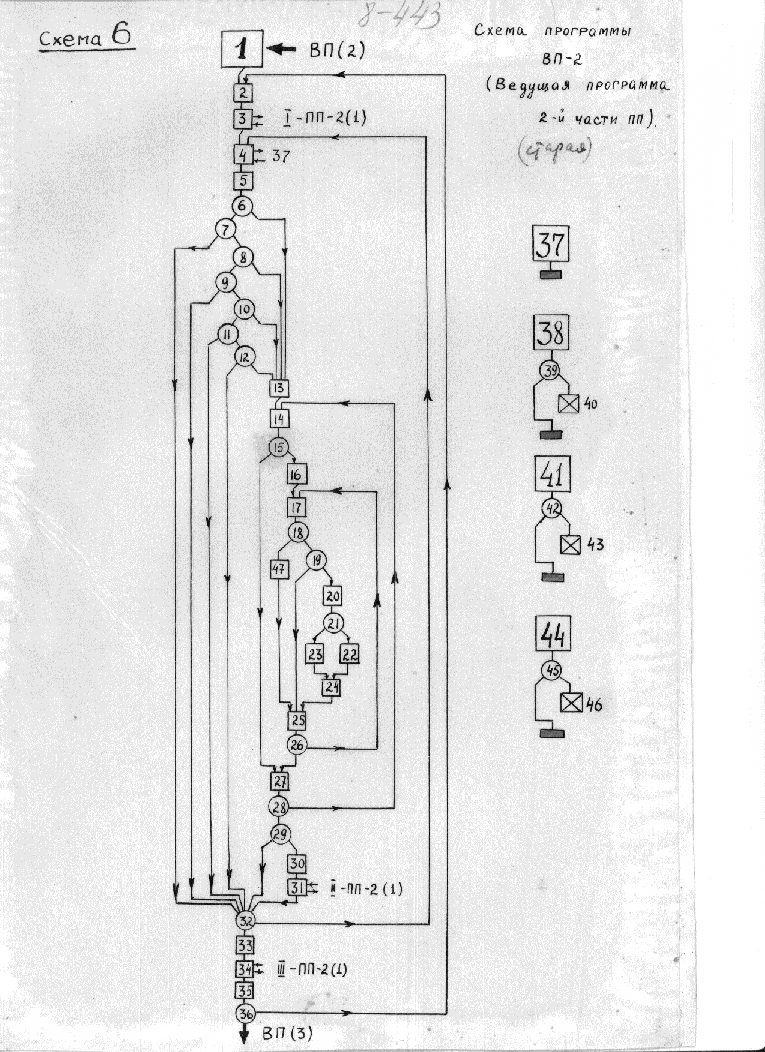 8-443
Схема 6
Схема программы
ВП-2
(Ведущая программа
2-й части ПП).
(старая)
1
ВП(2)
2
3
I-ПП-2(1)
4
37
5
6
7
8
9
10
11
12
13
14
15
16
17
18
47
19
20
21
23
22
24
25
26
27
28
29
30
31
II-ПП-2(1)
32
33
34
III-ПП-2(1)
35
36
ВП(3)
37
38
39
40
41
42
43
44
45
46